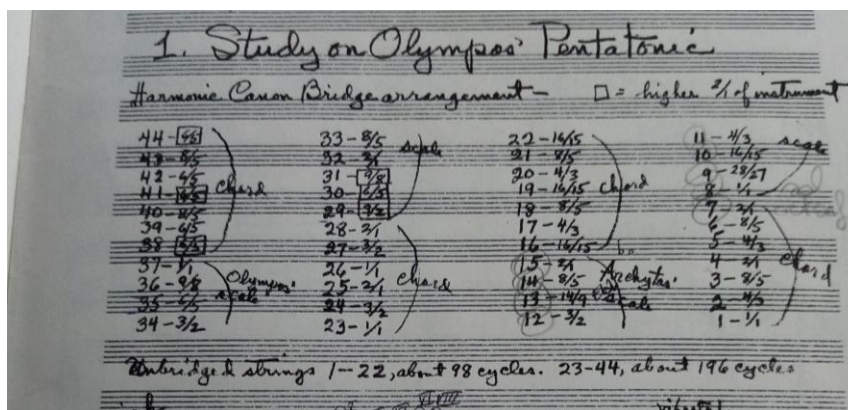 1. Study on Olympos' Pentatonic
Harmonic Canon Bridge arrangement — □ = higher 2/1 of instrument
44 – 6/5
43 – 8/5
42 – 6/5
41 – 6/5
40 – 8/5
39 – 6/5
38
chord
37 – 1/1
36 – 9/8
35 – 6/5
34 – 3/2
Olympos' scale
33 – 8/5
32 – 2/1
31 – 9/8
30 – 6/5
29 – 3/2
scale
28 – 2/1
27 – 3/2
26 – 1/1
25 – 2/1
24 – 3/2
23 – 1/1
chord
22 – 16/15
21 – 8/5
20 – 4/3
19 – 16/15
18 – 8/5
17 – 4/3
16 – 16/15
chord
15 – 2/1
14 – 8/5
13 – 14/9
12 – 3/2
Archytas' scale
11 – 4/3
10 – 16/15
9 – 28/27
8 – 1/1
scale
7 – 2/1
6 – 8/5
5 – 4/3
4 – 2/1
3 – 8/5
2 – 4/3
1 – 1/1
chord
Unbridged strings 1–22, about 98 cycles. 23–44, about 196 cycles